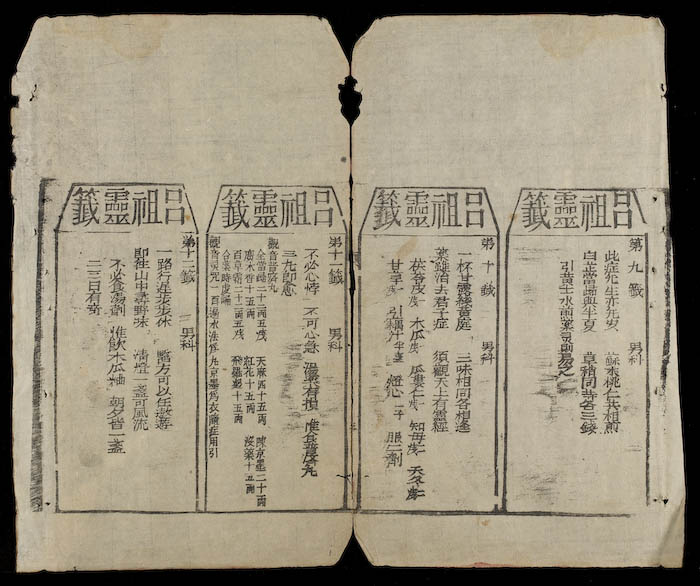 呂祖靈籤
第九籤 男科
此症先生亦先災 蘇木桃仁共相煎
白芷當歸與半夏 草稍同苓各三錢
引黃土水煎
呂祖靈籤
第十籤 男科
一杯甘露繞黃庭 三味相同各相逢
藥雖治去君子症 須觀天上有靈經
茯苓皮 木瓜 瓜蔞仁 知母 天冬
甘草 引藕汁半 燈心一子 服二劑
呂祖靈籤
第十一籤 男科
不必心悸 不可心急 湯藥有損 惟食普濟丸
三九即愈
觀音普濟丸
全當歸二十二兩五戔 天麻四十五兩 陳京墨二十兩
廣木香十五兩 紅花十五兩 沒藥十五兩
百草霜二十二兩五戔 飛羅麵十五兩
合藥時虔誦
觀音靈咒一百 湯水法丸 九京墨為衣隨症用引
呂祖靈籤
第十二籤 男科
一路行莲步步休 醫方可以任遨遊
即往山中尋野味 清燈一盞可風流
不必食湯劑 惟飲木瓜紬 朝夕皆一盞
二三日有奇